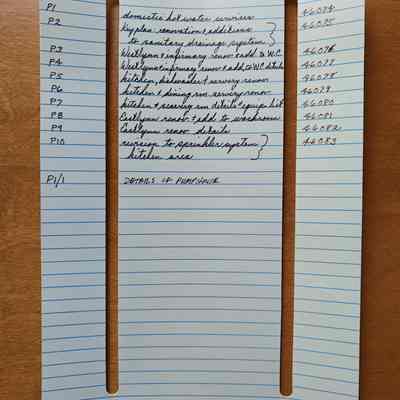 P1 domestic hot water services 46074
P2 key plan, renovation & additions 46075
to sanitary drainage system
P3 Westlynn & infirmary renov & add to W.C 46076
P4 Westlynn & infirmary renov & add, to W.C details 46077
P5 kitchen, dishwasher & servery renov 46078
P6 kitchen & dining rm servery renov 46079
P7 kitchen & servery rm details & equip list 46080
P8 Eastlynn renov & add to washroom 46081
P9 Eastlynn renov details 46082
P10 revision to sprinkler system 46083
kitchen area
P1/1 DETAILS OF PUMPHOUSE